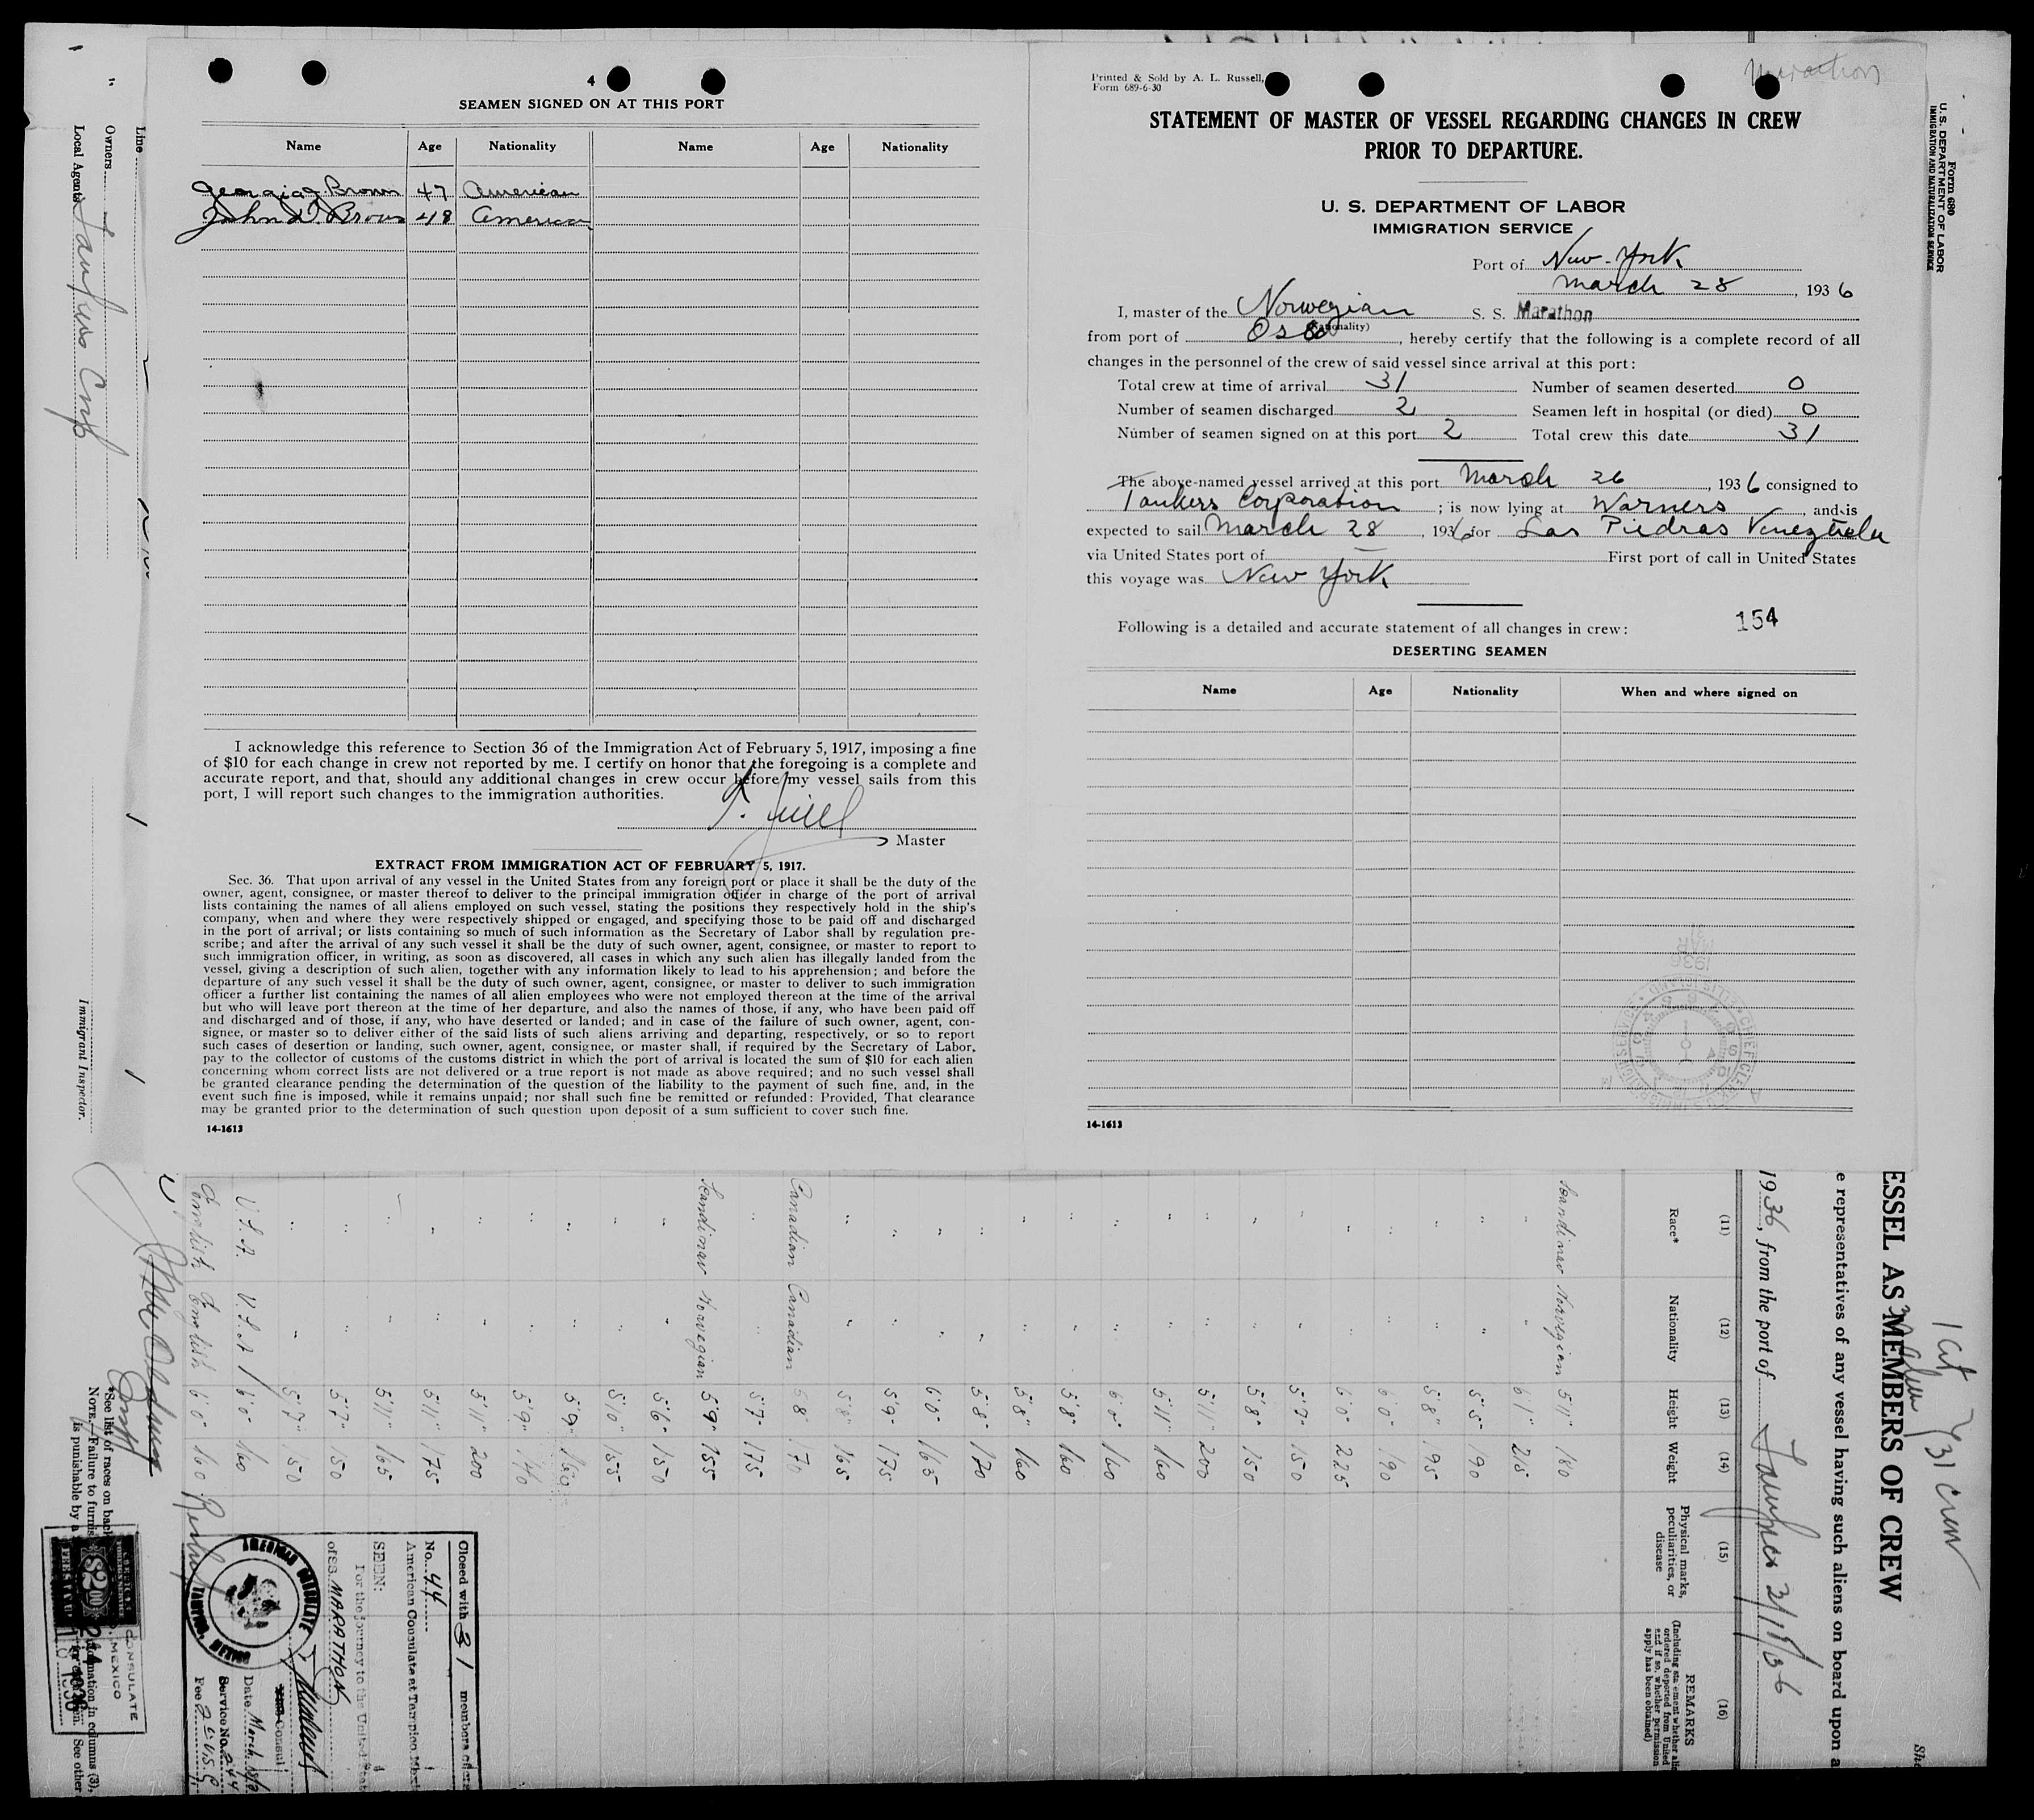 4
SEAMEN SIGNED ON AT THIS PORT
Name Age Nationality Name Age Nationality
Georgia J. Brown 47 American
John D. Brown 48 American
I acknowledge this reference to Section 36 of the Immigration Act of February 5, 1917, imposing a fine
of $10 for each change in crew not reported by me. I certify on honor that the foregoing is a complete and
accurate report, and that, should any additional changes in crew occur before my vessel sails from this
port, I will report such changes to the immigration authorities.
Master
EXTRACT FROM IMMIGRATION ACT OF FEBRUARY 5, 1917.
Sec. 36. That upon arrival of any vessel in the United States from any foreign port or place it shall be the duty of the
owner, agent, consignee, or master thereof to deliver to the principal immigration officer in charge of the port of arrival
lists containing the names of all aliens employed on such vessel, stating the positions they respectively hold in the ship's
company, when and where they were respectively shipped or engaged, and specifying those to be paid off and discharged
in the port of arrival; or lists containing so much of such information as the Secretary of Labor shall by regulation pre-
scribe; and after the arrival of any such vessel it shall be the duty of such owner, agent, consignee, or master to report to
such immigration officer, in writing, as soon as discovered, all cases in which any such alien has illegally landed from the
vessel, giving a description of such alien, together with any information likely to lead to his apprehension; and before the
departure of any such vessel it shall be the duty of such owner, agent, consignee, or master to deliver to such immigration
officer a further list containing the names of all alien employees who were not employed thereon at the time of the arrival
but who will leave port thereon at the time of her departure, and also the names of those, if any, who have been paid off
and discharged and of those, if any, who have deserted or landed; and in case of the failure of such owner, agent, con-
signee, or master so to deliver either of the said lists of such aliens arriving and departing, respectively, or so to report
such cases of desertion or landing, such owner, agent, consignee, or master shall, if required by the Secretary of Labor,
pay to the collector of customs of the customs district in which the port of arrival is located the sum of $10 for each alien
concerning whom correct lists are not delivered or a true report is not made as above required; and no such vessel shall
be granted clearance pending the determination of the question of the liability to the payment of such fine, and, in the
event such fine is imposed, while it remains unpaid; nor shall such fine be remitted or refunded: Provided, That clearance
may be granted prior to the determination of such question upon deposit of a sum sufficient to cover such fine.
14-1613
Printed & Sold by A. L. Russell,
Form 689-6-30
Marathon
STATEMENT OF MASTER OF VESSEL REGARDING CHANGES IN CREW
PRIOR TO DEPARTURE.
U. S. DEPARTMENT OF LABOR
IMMIGRATION SERVICE
Port of New-York
March 28, 1936
I, master of the Norwegian S. S. Marathon
(Nationality)
from port of Oslo, hereby certify that the following is a complete record of all
changes in the personnel of the crew of said vessel since arrival at this port:
Total crew at time of arrival 31 Number of seamen deserted 0
Number of seamen discharged 2 Seamen left in hospital (or died) 0
Number of seamen signed on at this port 2 Total crew this date 31
The above-named vessel arrived at this port March 26, 1936 consigned to
Tankers Corporation; is now lying at Warners, and is
expected to sail March 28, 1936 for Las Piedras Venezuela
via United States port of First port of call in United States
this voyage was New York
154
Following is a detailed and accurate statement of all changes in crew:
DESERTING SEAMEN
Name Age Nationality When and where signed on
14-1613
Form 680
U. S. DEPARTMENT OF LABOR
IMMIGRATION AND NATURALIZATION SERVICE
Line
Owners
Local Agents Tankers Corp
Immigrant Inspector.
ESSEL AS MEMBERS OF CREW
e representatives of any vessel having such aliens on board upon a
1936, from the port of Tampico 3/18/36
31 crew
(11) (12) (13) (14) (15) (16)
Race* Nationality Height Weight Physical marks, peculiarities, or disease REMARKS
(Including statement whether
ordered deported from United
and if so, whether permission
apply has been obtained)
Scandinav Norwegian 5'11" 180
" " 6'1" 215
" " 5'5" 190
" " 5'8" 195
" " 6'0" 190
" " 6'0" 225
" " 5'7" 150
" " 5'8" 150
" " 5'11" 200
" " 5'11" 160
" " 6'0" 160
" " 5'8" 160
" " 5'8" 160
" " 5'8" 170
" " 6'0" 165
" " 5'9" 175
" " 5'8" 165
Canadian Canadian 5'8" 170
" " 5'7" 175
Scandinav Norwegian 5'9" 155
" " 5'6" 150
" " 5'10" 155
" " 5'9" 160
" " 5'9" 140
" " 5'11" 200
" " 5'11" 175
" " 5'11" 165
" " 5'7" 150
" " 5'7" 150
U.S.A. U.S.A 6'0" 160
English English 6'0" 160
Closed with 31 members
No. 44
American Consulate at Tampico
SEEN:
For the journey to the United
of SS. MARATHON
Consul
Date March
Service No. 244
Fee
AMERICAN CONSULATE
TAMPICO, MEXICO
$2.00
CONSULATE
MEXICO
*See list of races on back
NOTE.—Failure to furnis
is punishable by a
See other